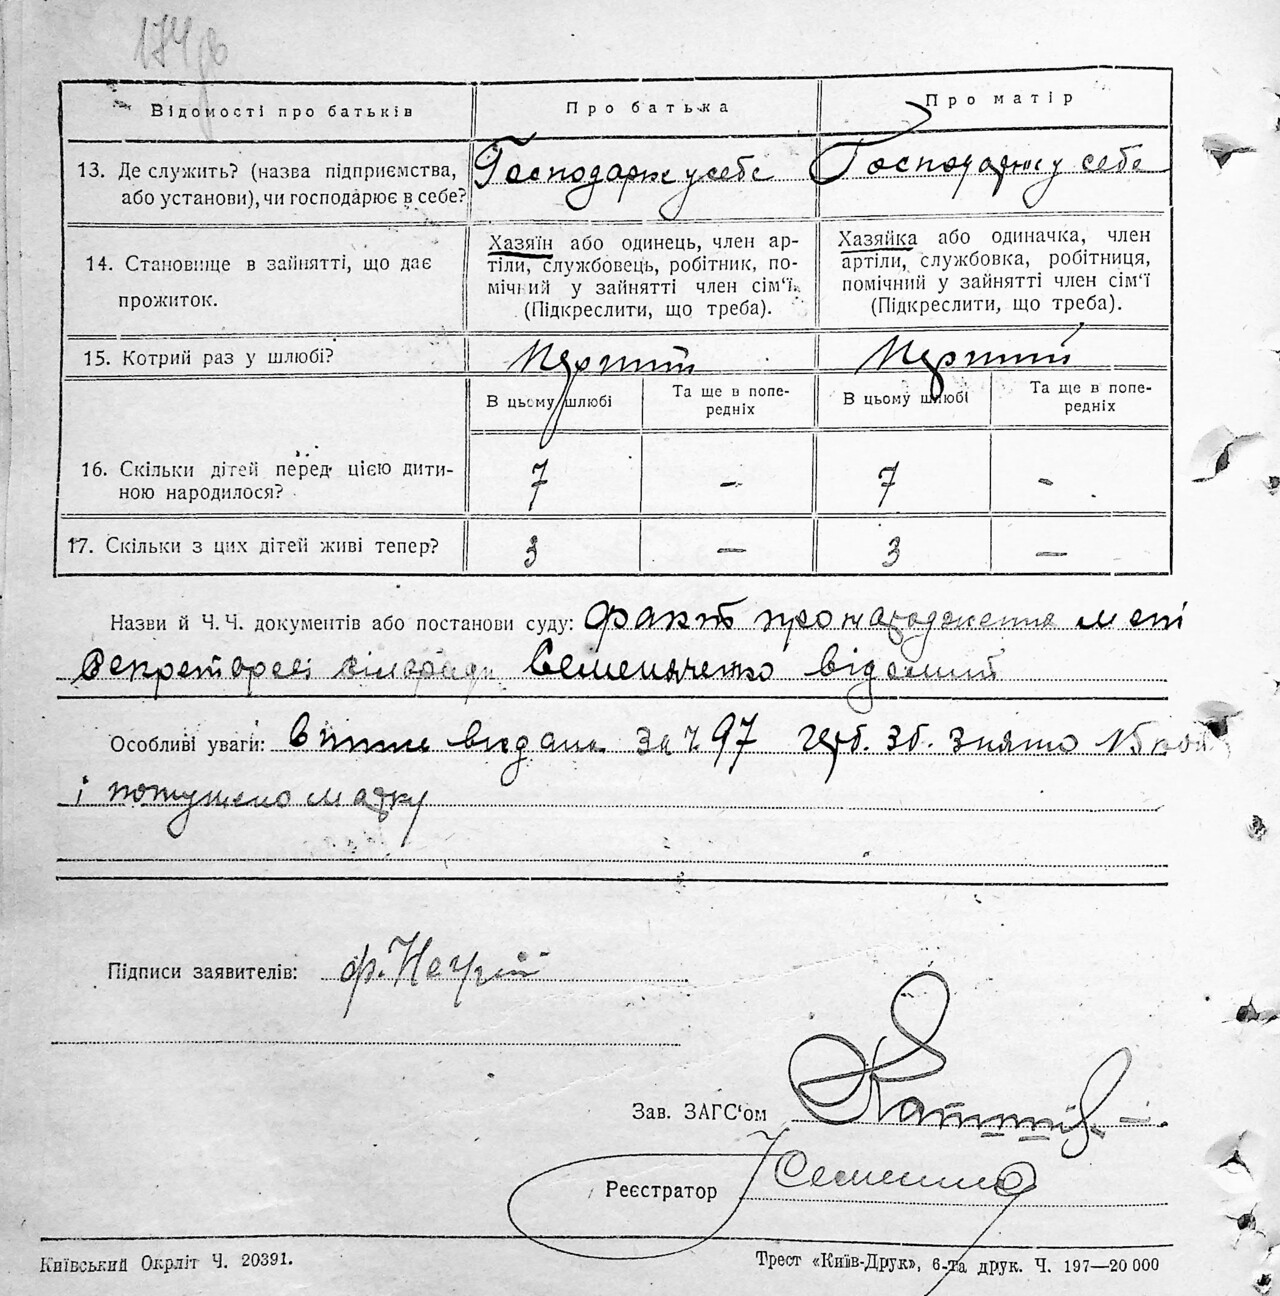 174 зв
Відомості про батьків
Про батька
Про матір
13. Де служить? (назва підприємства,
або установи), чи господарює в себе?
Господарює у себе
Господарює у себе
14. Становище в зайнятті, що дає
прожиток.
Хазяїн або одинець, член ар-
тіли, службовець, робітник, по-
мічний у зайнятті член сім'ї.
(Підкреслити, що треба).
Хазяйка або одиначка, член
артіли, службовка, робітниця,
помічний у зайнятті член сім'ї
(Підкреслити, що треба).
15. Котрий раз у шлюбі?
Перший
Перший
В цьому шлюбі
Та ще в попе-
редніх
В цьому шлюбі
Та ще в попе-
редніх
16. Скільки дітей перед цією дити-
ною народилося?
7 - 7 -
17. Скільки з цих дітей живі тепер?
3 — 3 —
Назви й Ч. Ч. документів або постанови суду: Факт про народження мені
Секретареві сільради Семенченко відомий
Особливі уваги: Витяг видана за ч. 97 герб. зб. знято 15 коп
і погашено марку
Підписи заявителів: ф. Негрій
Зав. ЗАГС'ом
Реєстратор
Київський Окрліт Ч. 20391.
Трест «Київ-Друк», 6-та друк. Ч. 197—20 000